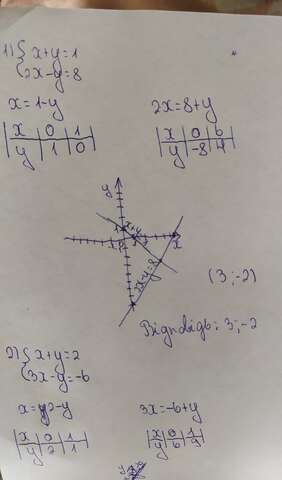 1) { x+y=1
2x-y=8
x=1-y 2x=8+y
x 0 1 x 0 6
y 1 0 y -8 4
y
x+y
x
2x-y=8
(3;-2)
Відповідь: 3;-2
2) { x+y=2
3x-y=-6
x=2-y 3x=-6+y
x 0 1 x 0 1
y 2 1 y 6 9